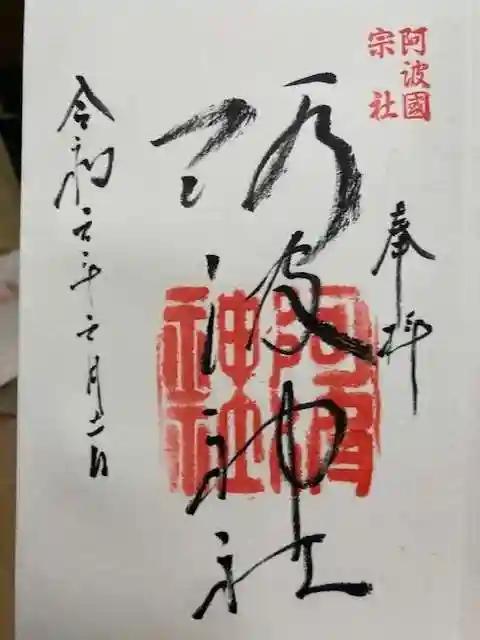 阿波國
宗社
奉拝
阿波神社
阿波
神社
令和元年 月 日